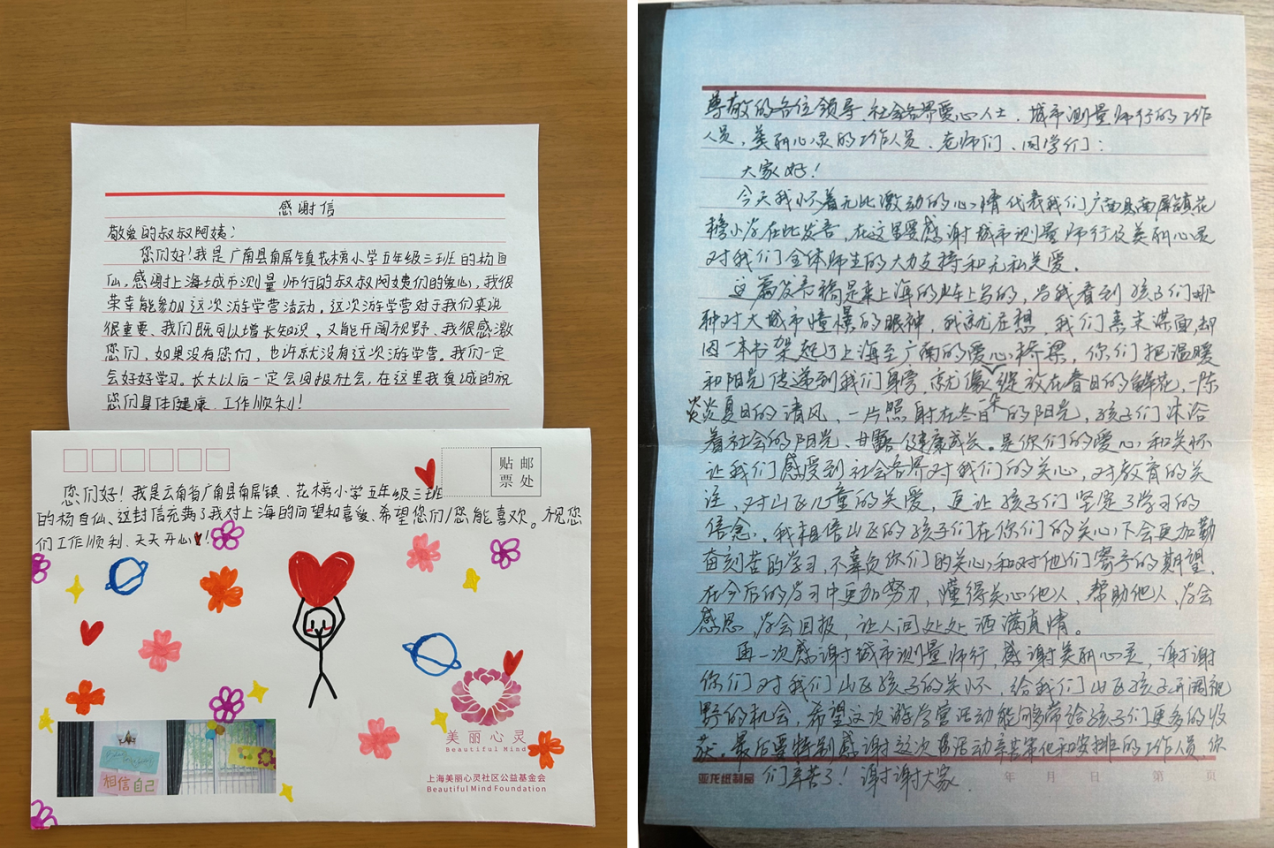 感谢信
敬爱的叔叔阿姨：
您们好！我是广南县南屏镇花榜小学五年级三班的杨自
仙，感谢上海城市测量师行的叔叔阿姨们的爱心，我很
荣幸能参加这次游学营活动，这次游学营对于我们来说
很重要、我们既可以增长知识、又能开阔视野，我很感激
您们，如果没有您们，也许就没有这次游学营。我们一定
会好好学习。长大以后一定会回报社会，在这里我真诚的祝
您们身体健康、工作顺利！
贴邮
票处
您们好！我是云南省广南县南屏镇、花榜小学五年级三班
的杨自仙、这封信充满了我对上海的向望和喜爱、希望您们/您能喜欢。祝您
们工作顺利、天天开心！
相信自己
美丽心灵
Beautiful Mind
上海美丽心灵社区公益基金会
Beautiful Mind Foundation
尊敬的各位领导、社会各界爱心人士、城市测量师行的工作
人员，美丽心灵的工作人员、老师们、同学们：
大家好！
今天我怀着无比激动的心情代表我们广南县南屏镇花
榜小学在此发言，在这里要感谢城市测量师行及美丽心灵
对我们全体师生的大力支持和无私关爱。
这篇发言稿是来上海的火车上写的，当我看到孩子们那
种对大城市憧憬的眼神，我就在想，我们素未谋面却
因一本书架起了上海至广南的爱心桥梁，你们把温暖
和阳光传递到我们身旁，就像绽放在春日的鲜花，一阵
炎炎夏日的清风，一片照射在冬日的阳光，孩子们沐浴
着社会的阳光、甘露健康成长。是你们的爱心和关怀
让我们感受到社会各界对我们的关心，对教育的关
注，对山区儿童的关爱，更让孩子们坚定了学习的
信念，我相信山区的孩子们在你们的关心下会更加勤
奋刻苦的学习，不辜负你们的关心和对他们寄予的期望，
在今后的学习中更加努力，懂得关心他人、帮助他人，学会
感恩，学会回报，让人间处处洒满真情。
再一次感谢城市测量师行，感谢美丽心灵，谢谢
你们对我们山区孩子的关怀，给我们山区孩子开阔视
野的机会，希望这次游学营活动能够带给孩子们更多的收
获。最后要特别感谢这次活动亲苦和安排的工作人员你
们辛苦了！谢谢大家
亚龙纸制品 年 月 日 第 页